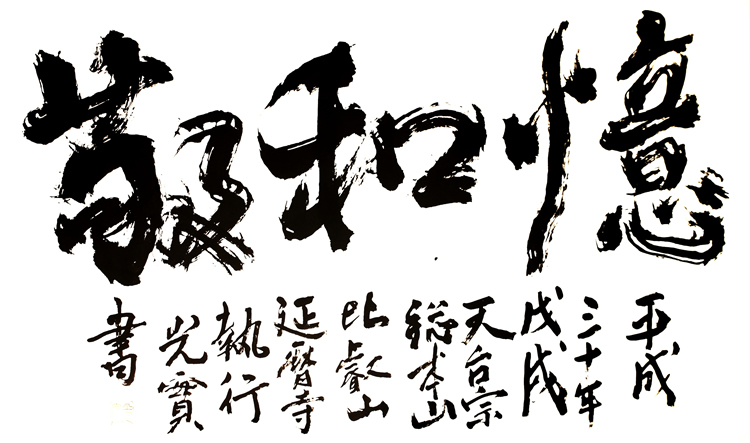 憶和敬
平成
三十年
戊戌
天台宗
総本山
比叡山
延暦寺
執行
光實
書